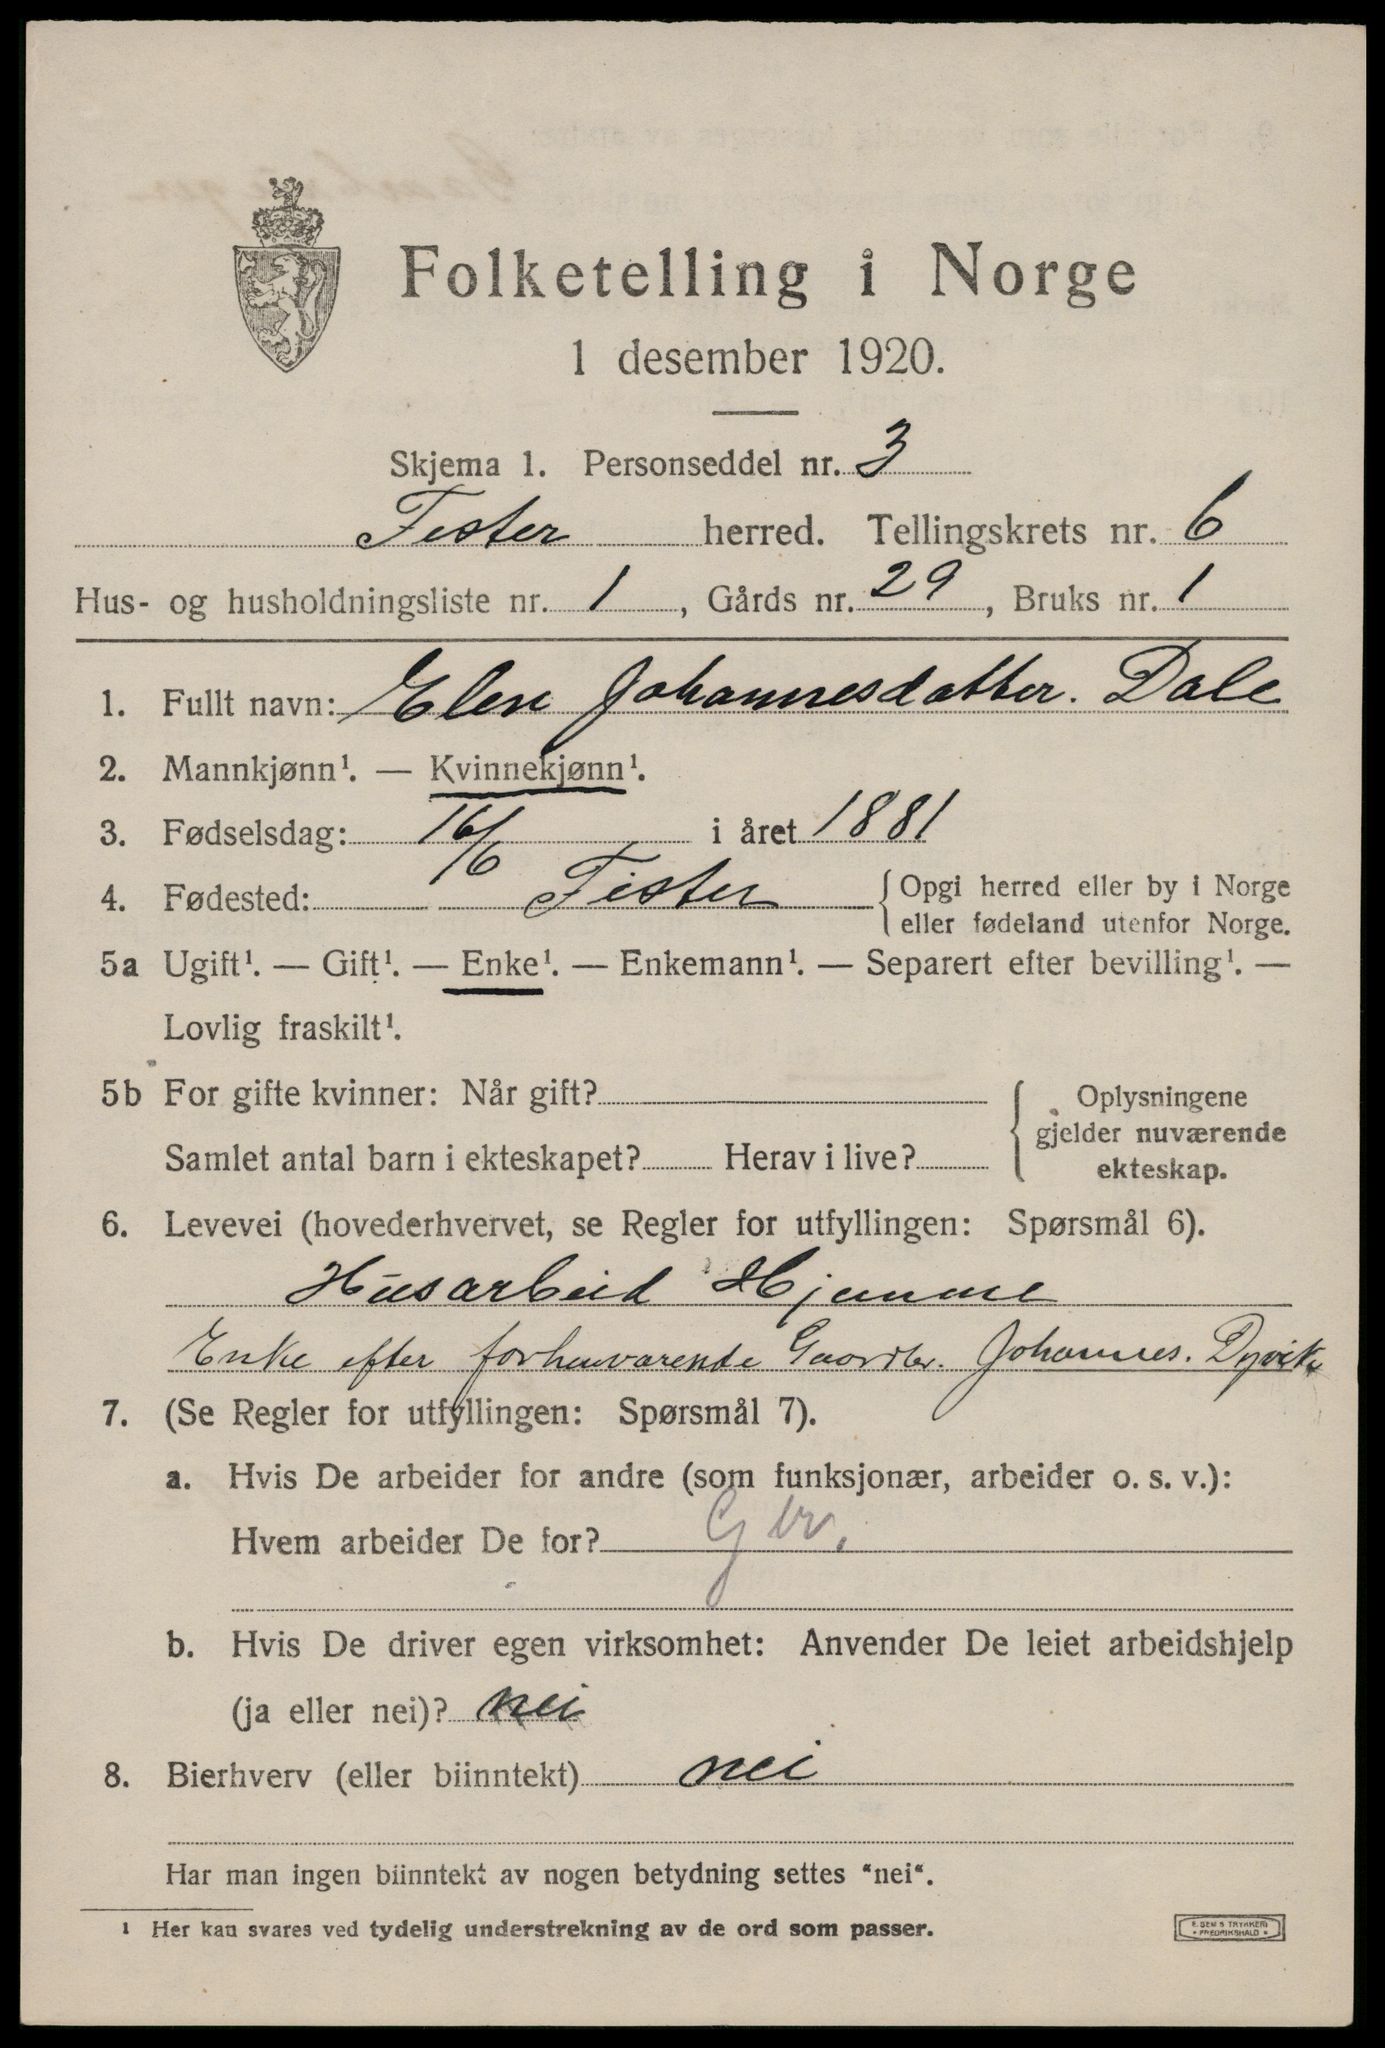 Folketelling i Norge
1 desember 1920.
Skjema 1. Personseddel nr. 3
Fister herred. Tellingskrets nr. 6
Hus- og husholdningsliste nr. 1, Gårds nr. 29, Bruks nr. 1
1. Fullt navn: Elen Johannesdatter. Dale
2. Mannkjønn¹. — Kvinnekjønn¹.
3. Fødselsdag: 16/6 i året 1881
4. Fødested: Fister { Opgi herred eller by i Norge
eller fødeland utenfor Norge.
5a Ugift¹. — Gift¹. — Enke¹. — Enkemann¹. — Separert efter bevilling¹. —
Lovlig fraskilt¹.
5b For gifte kvinner: Når gift?
Samlet antal barn i ekteskapet? Herav i live?
Oplysningene
gjelder nuværende
ekteskap.
6. Levevei (hovederhvervet, se Regler for utfyllingen: Spørsmål 6).
Husarbeid Hjemme
Enke efter forhenværende Gaardbr. Johannes. Dyvik
7. (Se Regler for utfyllingen: Spørsmål 7).
a. Hvis De arbeider for andre (som funksjonær, arbeider o. s. v.):
Hvem arbeider De for? Gbr.
b. Hvis De driver egen virksomhet: Anvender De leiet arbeidshjelp
(ja eller nei)? nei
8. Bierhverv (eller biinntekt) nei
Har man ingen biinntekt av nogen betydning settes "nei".
¹ Her kan svares ved tydelig understrekning av de ord som passer.
E. SEM'S TRYKKERI
• FREDRIKSHALD •